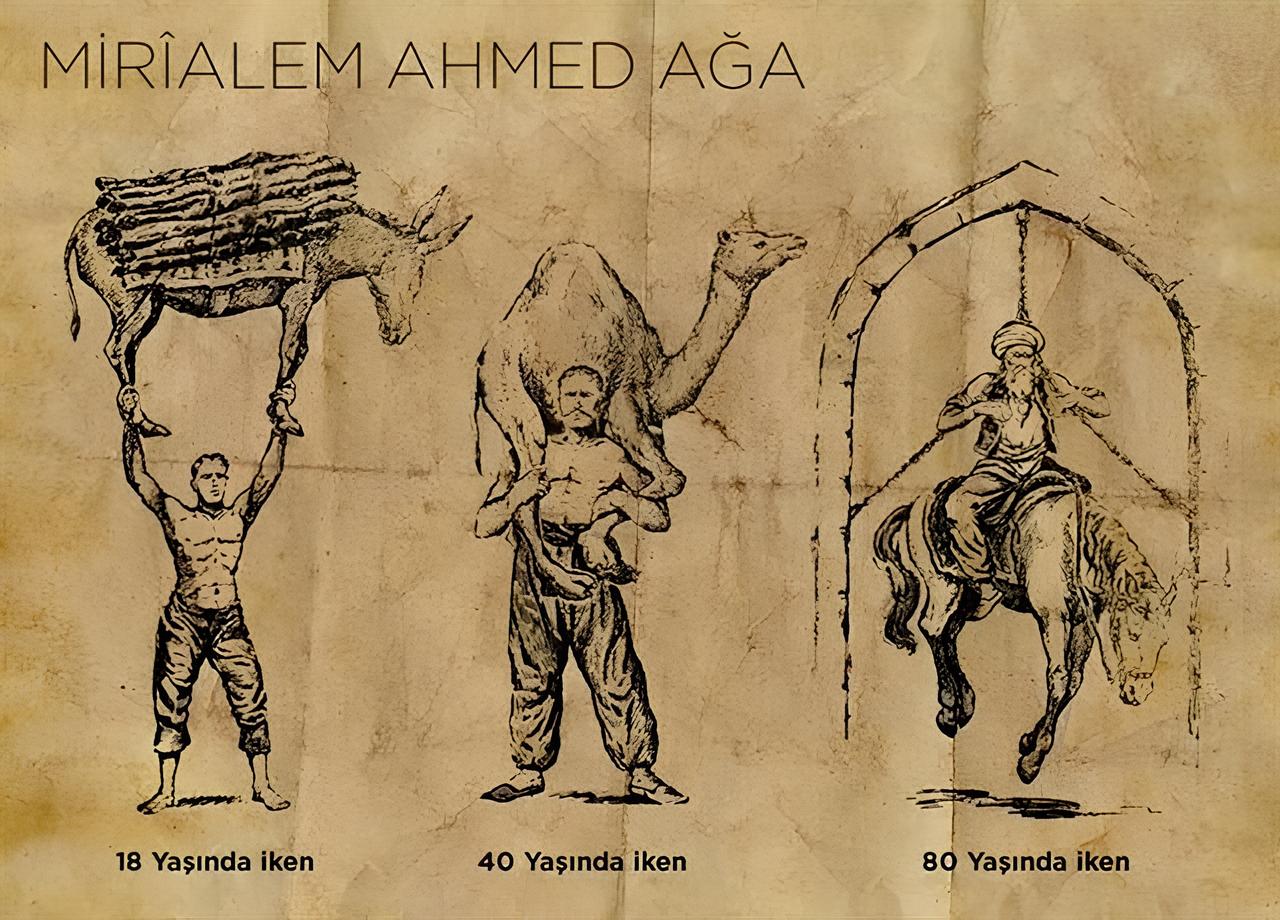 MİRÎALEM AHMED AĞA
18 Yaşında iken
40 Yaşında iken
80 Yaşında iken